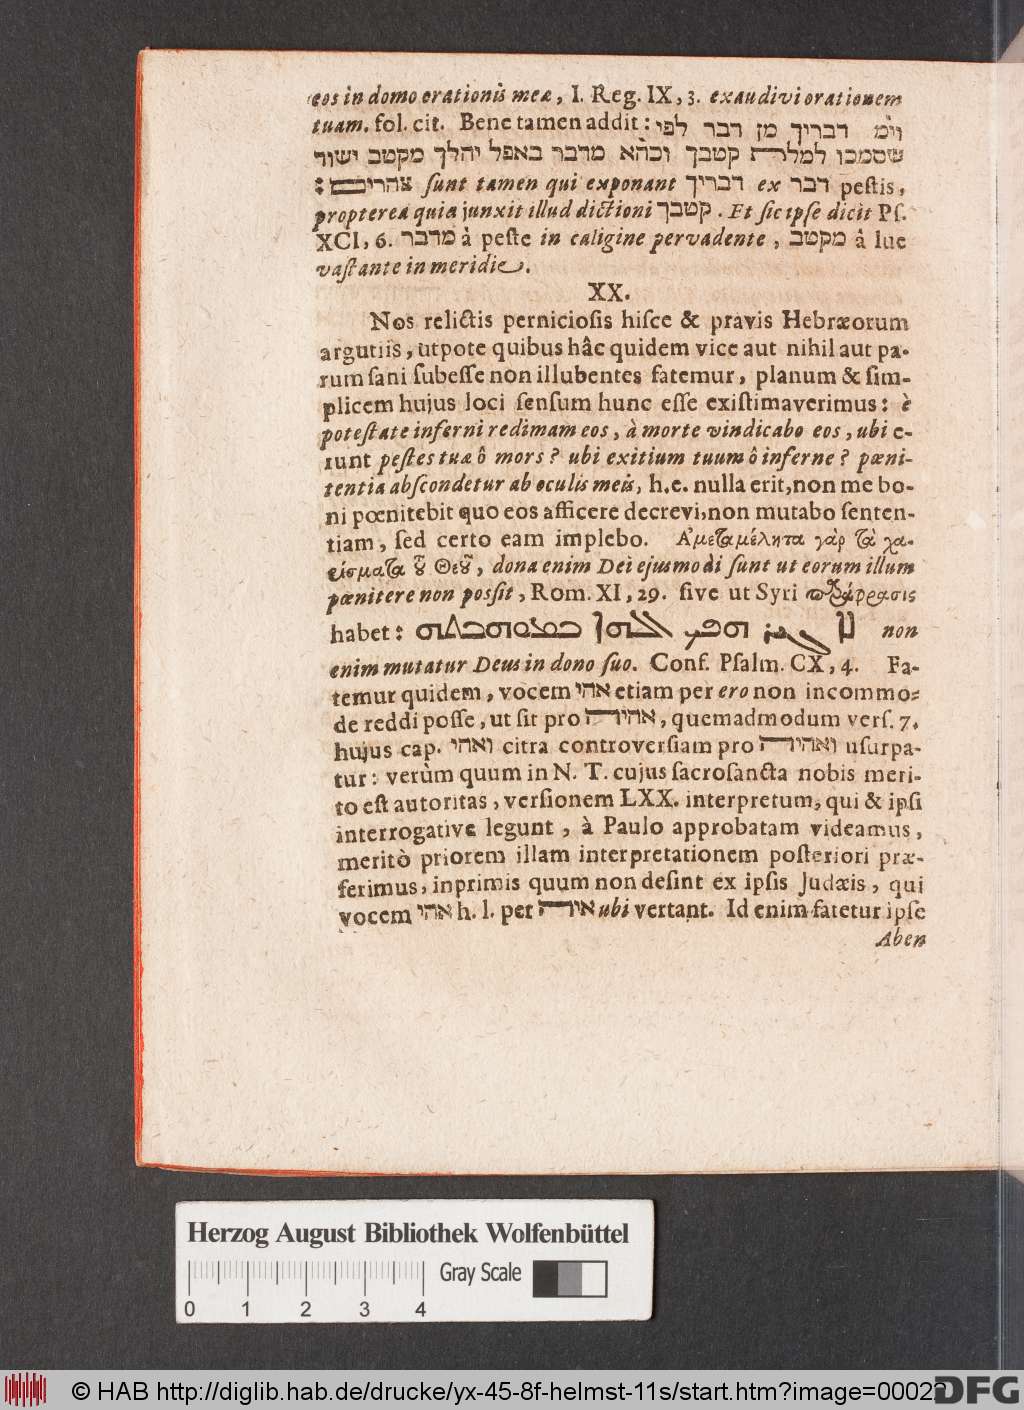 eos in domo orationis meæ, I. Reg. IX, 3. exaudivi orationem
tuam. fol. cit. Bene tamen addit: וי״מ דבריך מן דבר לפי
שסמכו למלת קטבך וכהא מדבר באפל יהלך מקטב ישוד
צהרים: sunt tamen qui exponant דבריך ex דבר pestis,
propterea quia junxit illud dictioni קטבך. Et sic ipse dicit Ps.
XCI, 6. מדבר à peste in caligine pervadente, מקטב â lue
vastante in meridie.
XX.
Nos relictis perniciosis hisce & pravis Hebræorum
argutiis, utpote quibus hâc quidem vice aut nihil aut pa-
rum sani subesse non illubentes fatemur, planum & sim-
plicem hujus loci sensum hunc esse existimaverimus: è
potestate inferni redimam eos, à morte vindicabo eos, ubi e-
runt pestes tuæ ô mors? ubi exitium tuum ô inferne? pœni-
tentia abscondetur ab oculis meis, h.e. nulla erit, non me bo-
ni pœnitebit quo eos afficere decrevi, non mutabo senten-
tiam, sed certo eam implebo. Ἀμεταμέλητα γὰρ τὰ χα-
ρίσματα τȣ͂ Θεȣ͂, dona enim Dei ejusmodi sunt ut eorum illum
pœnitere non possit, Rom. XI, 29. sive ut Syri παράφρασις
habet: non
enim mutatur Deus in dono suo. Conf. Psalm. CX, 4. Fa-
temur quidem, vocem אהי etiam per ero non incommo-
de reddi posse, ut sit pro אהיה, quemadmodum vers. 7.
hujus cap. ואהי citra controversiam pro ואהיה usurpa-
tur: verùm quum in N. T. cujus sacrosancta nobis meri-
to est autoritas, versionem LXX. interpretum, qui & ipsi
interrogative legunt, à Paulo approbatam videamus,
meritò priorem illam interpretationem posteriori præ-
ferimus, inprimis quum non desint ex ipsis Judæis, qui
vocem אהי h. l. per איה ubi vertant. Id enim fatetur ipse
Aben
Herzog August Bibliothek Wolfenbüttel
Gray Scale
0 1 2 3 4
© HAB http://diglib.hab.de/drucke/yx-45-8f-helmst-11s/start.htm?image=00022
DFG